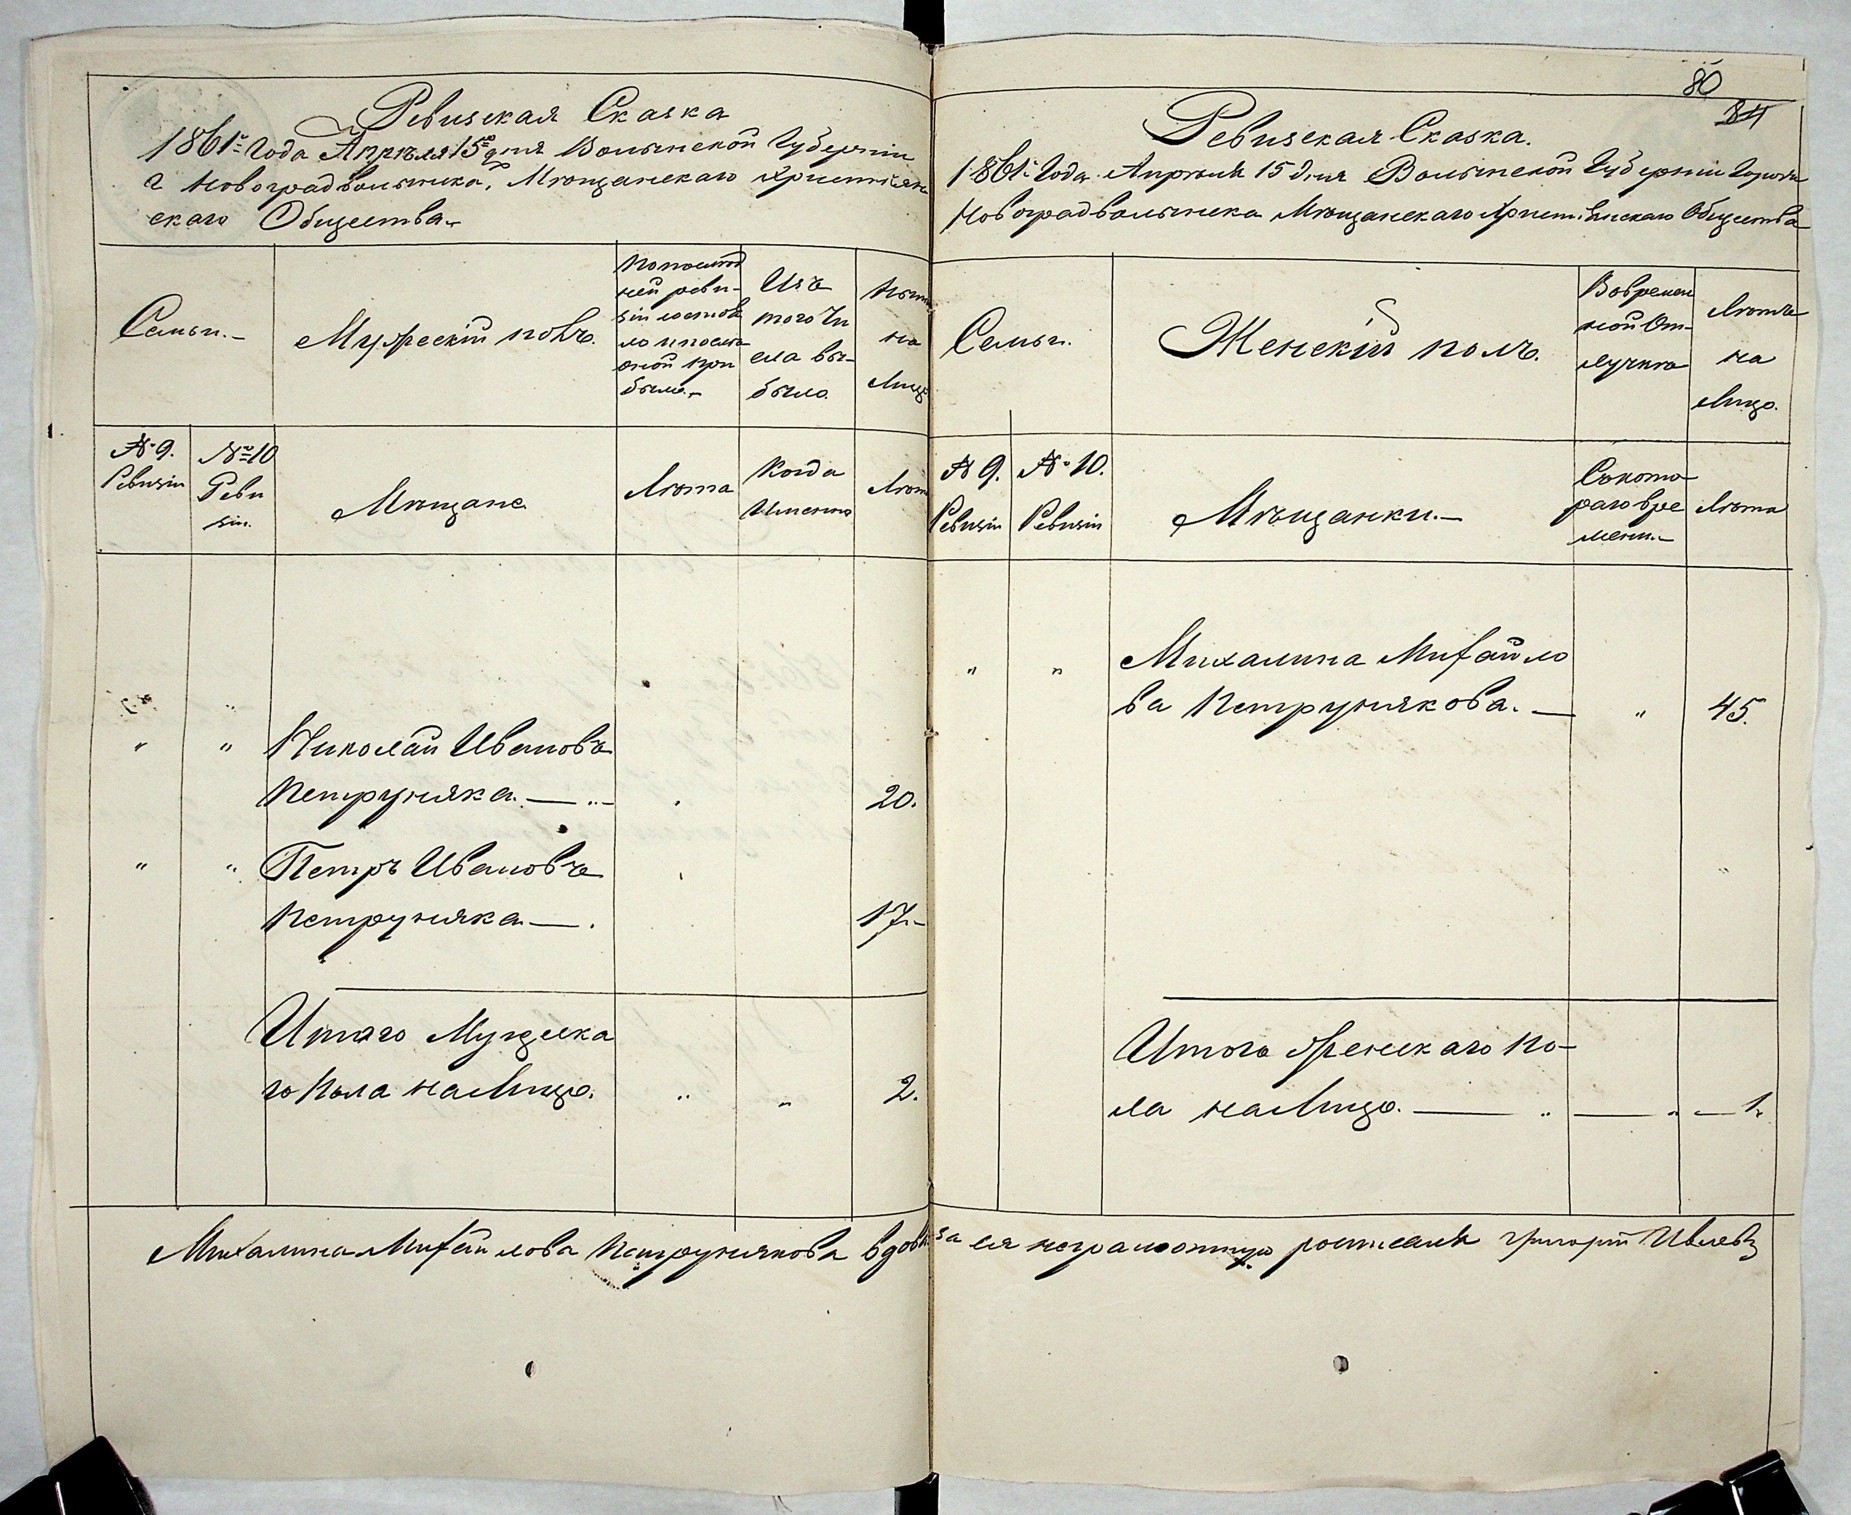 Ревизская Сказка
1861го Года Апреля 15го дня Волынской Губерніи
г Новоградволынска, Мѣщанскаго Христіян
скаго Общества
Семьи.
Мужескій полъ.
По послѣд
ней реви-
зіи состоя
ло и после
оной при
было.
Изъ
того чи
сла вы-
было.
Ныне
на
Лицо
№ 9.
Ревизіи
№ 10
Реви
зіи.
Мѣщане
Лѣта
Когда
Именно
Лѣта
" "
Николай Ивановъ
Петруняка. 20.
" " Петръ Ивановъ
Петруняка 17.
Итого Мужска
го Пола на Лицо. " " 2.
80
84
Ревизская Сказка.
1861го Года Апреля 15 дня Волынской Губерніи Города
Новоградволынска Мѣщанскаго Христіянскаго Общества
Семьи.
Женскій полъ.
Вовремен
ной От-
лучки
Лѣта
на
Лицо.
№ 9.
Ревизіи
№ 10.
Ревизіи
Мѣщанки.
Съкото
раго вре
мени.
Лѣта
" " Михалина Михайло
ва Петрунякова. " 45.
Итого Женскаго по-
ла на Лицо. " " 1.
Михалина Михайлова Петрунякова вдова за ея неграмотную росписался Григорій